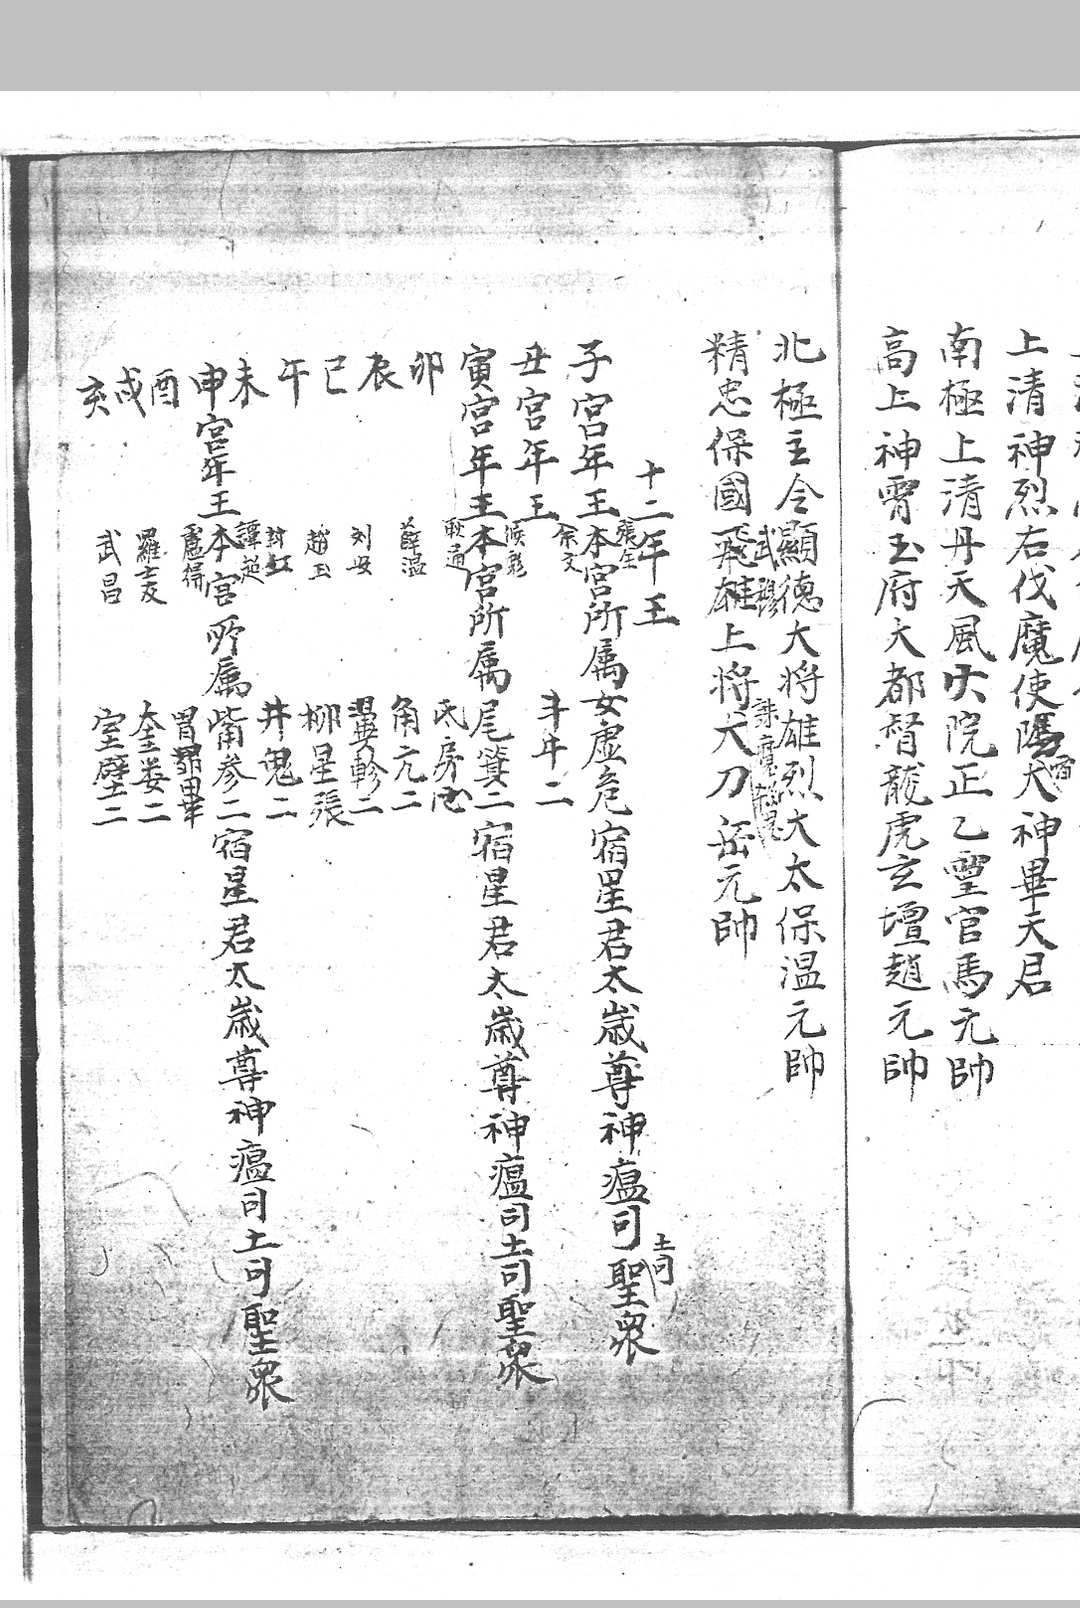 上清神烈右伐魔使大神畢天君
南極上清丹天風火院正乙靈官馬元帥
高上神霄玉府大都督龍虎玄壇趙元帥
北極主令顯德大將雄烈大太保溫元帥
武穆
精忠保國飛雄上將大刀岳元帥
十二年王
子宮年王本宮所属女虛危宿星君太歲尊神瘟司聖衆
張全
土司
余文
丑宮年王
斗牛二
侯彪
寅宮年王本宮所属尾箕二宿星君太歲尊神瘟司土司聖衆
耿通
卯
氐房心
薛溫
辰
角亢二
刘安
巳
翼軫二
趙玉
午
柳星張
封紅
未
井鬼二
譚起
申宮年王本宮所属觜參二宿星君太歲尊神瘟司土司聖衆
盧得
酉
胃昴畢
羅交
戌
奎娄二
武昌
亥
室壁二